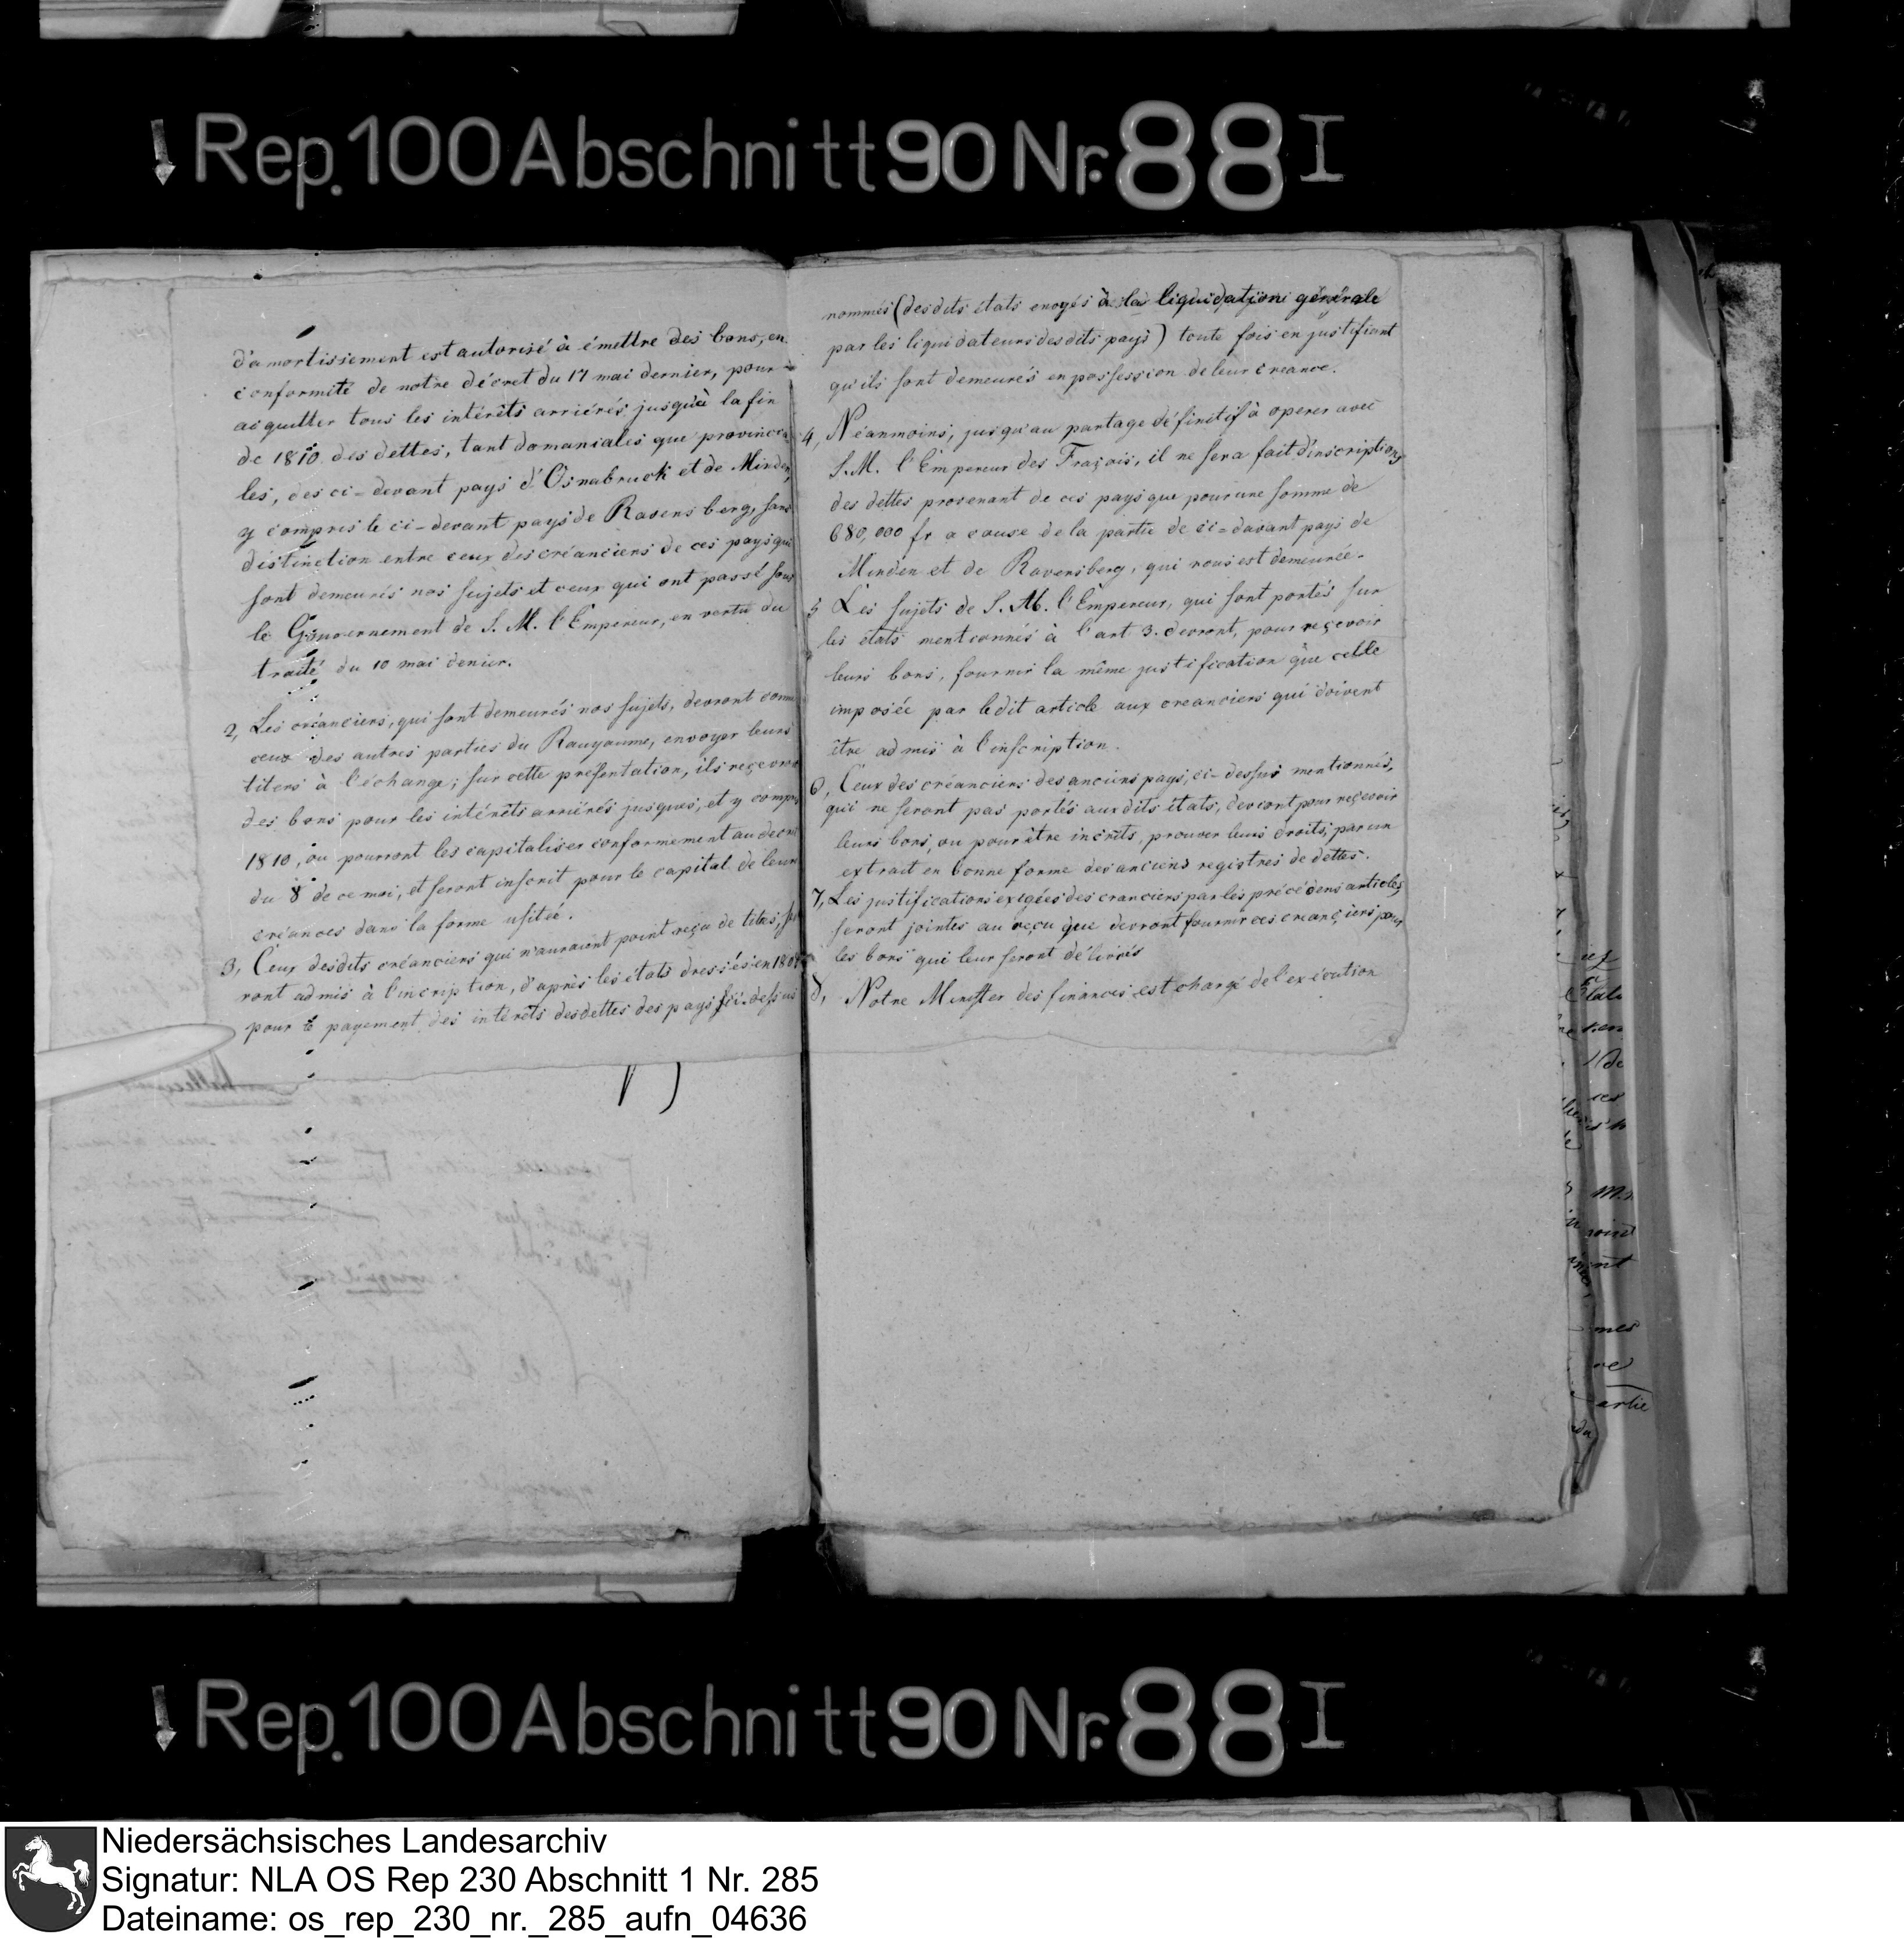 Rep. 100 Abschnitt 90 Nr. 88 I
d'amortissement est autorisé à émettre des bons, en
conformité de notre décret du 17 mai dernier, pour
acquitter tous les intérêts arriérés jusqu'à la fin
de 1810 des dettes, tant domaniales que provincia
les, des ci-devant pays d'Osnabruck et de Minden,
y compris le ci-devant pays de Ravensberg, sans
distinction entre ceux des créanciers de ces pays qui
sont demeurés nos sujets et ceux qui ont passé sous
le Gouvernement de S. M. l'Empereur, en vertu du
traité du 10 mai denier.
2, Les créanciers, qui sont demeurés nos sujets, devront comme
ceux des autres parties du Rauyaume, envoyer leurs
titers à l'échange; sur cette présentation, ils reçevront
des bons pour les intérêts arriérés jusques, et y compris
1810, ou pourront les capitaliser conformement au decret
du 8 de ce moi, et seront inscrit pour le capital de leurs
créances dans la forme usitée.
3, Ceux desdits créanciers qui n'auraient point reçu de titres, se
ront admis à l'incription, d'après les états dressés en 180
pour le payement des intérêts desdettes des pays ci-dessus
nommés (desdits états envoyés à la liquidation générale
par les liquidateurs desdits pays) toute fois en justifiant
qu'ils sont demeurés en possession de leur creance.
4, Néanmoins, jusqu'au partage définitif à operer avec
S. M. l'Empereur des Fraçois, il ne sera fait d'inscriptions
des dettes provenant de ces pays que pour une somme de
680,000 fr a cause de la partie de ci-davant pays de
Minden et de Ravensberg, qui nous est demeurée.
5 Les sujets de S. M. l'Empereur, qui sont portés sur
les états mentionnés à l'art 3. devront, pour reçevoir
leurs bons, fournir la même justification que celle
imposée par ledit article aux creanciers qui doivent
être admis à l'inscription.
6, Ceux des créanciers des anciens pays, ci-dessus mentionnés,
qui ne seront pas portés auxdits états, devront pour reçevoir
leurs bons, ou pour être incrits, prouver leurs droits, par un
extrait en bonne forme des anciens registres de dettes.
7, Les justifications exigées des cranciers par les précédens articles,
seront jointes au reçu que devront fournir ces creançiers pour
les bons qui leur seront délivrés
8, Notre Minister des finances est chargé de l'exécution
Rep. 100 Abschnitt 90 Nr. 88 I
Niedersächsisches Landesarchiv
Signatur: NLA OS Rep 230 Abschnitt 1 Nr. 285
Dateiname: os_rep_230_nr._285_aufn_04636